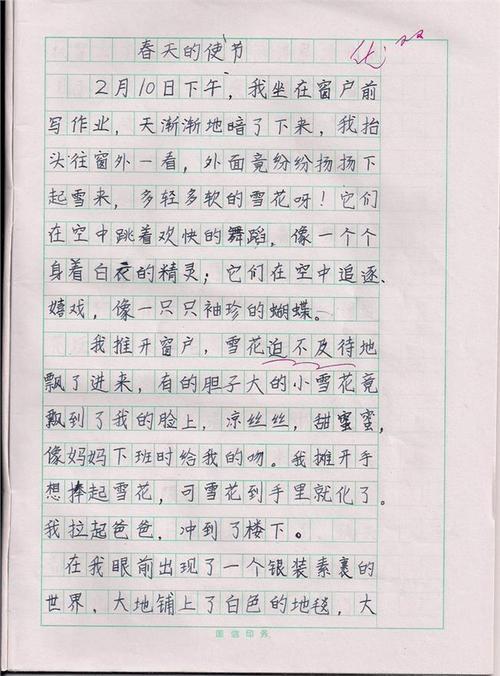 春天的使节
优
2月10日下午，我坐在窗户前
写作业，天渐渐地暗了下来，我抬
头往窗外一看，外面竟纷纷扬扬下
起雪来，多轻多软的雪花呀！它们
在空中跳着欢快的舞蹈，像一个个
身着白衣的精灵；它们在空中追逐、
嬉戏，像一只只袖珍的蝴蝶。
我推开窗户，雪花迫不及待地
飘了进来，有的胆子大的小雪花竟
飘到了我的脸上，凉丝丝，甜蜜蜜，
像妈妈下班时给我的吻。我摊开手
想捧起雪花，可雪花到手里就化了。
我拉起爸爸，冲到了楼下。
在我眼前出现了一个银装素裹的
世界，大地铺上了白色的地毯，大